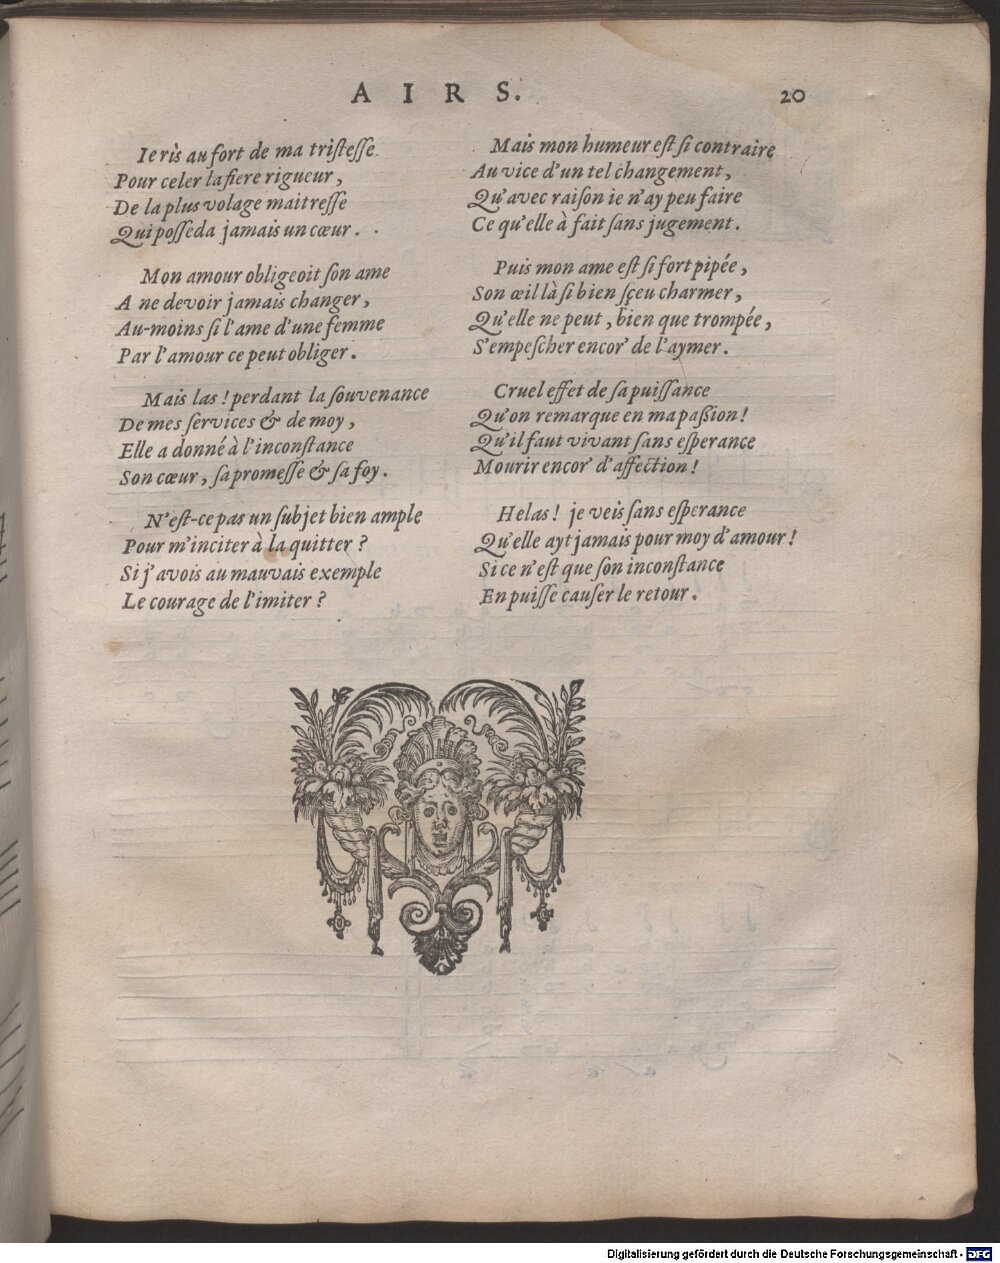 AIRS. 20
Ie ris au fort de ma tristesse
Pour celer la fiere rigueur,
De la plus volage maitresse
Qui posseda jamais un cœur.
Mon amour obligeoit son ame
A ne devoir jamais changer,
Au-moins si l'ame d'une femme
Par l'amour ce peut obliger.
Mais las! perdant la souvenance
De mes services & de moy,
Elle a donné à l'inconstance
Son cœur, sa promesse & sa foy.
N'est-ce pas un subjet bien ample
Pour m'inciter à la quitter?
Si j'avois au mauvais exemple
Le courage de l'imiter?
Mais mon humeur est si contraire
Au vice d'un tel changement,
Qu'avec raison ie n'ay peu faire
Ce qu'elle à fait sans jugement.
Puis mon ame est si fort pipée,
Son œil là si bien sçeu charmer,
Qu'elle ne peut, bien que trompée,
S'empescher encor' de l'aymer.
Cruel effet de sa puissance
Qu'on remarque en ma passion!
Qu'il faut vivant sans esperance
Mourir encor' d'affection!
Helas! je veis sans esperance
Qu'elle ayt jamais pour moy d'amour!
Si ce n'est que son inconstance
En puisse causer le retour.
Digitalisierung gefördert durch die Deutsche Forschungsgemeinschaft - DFG